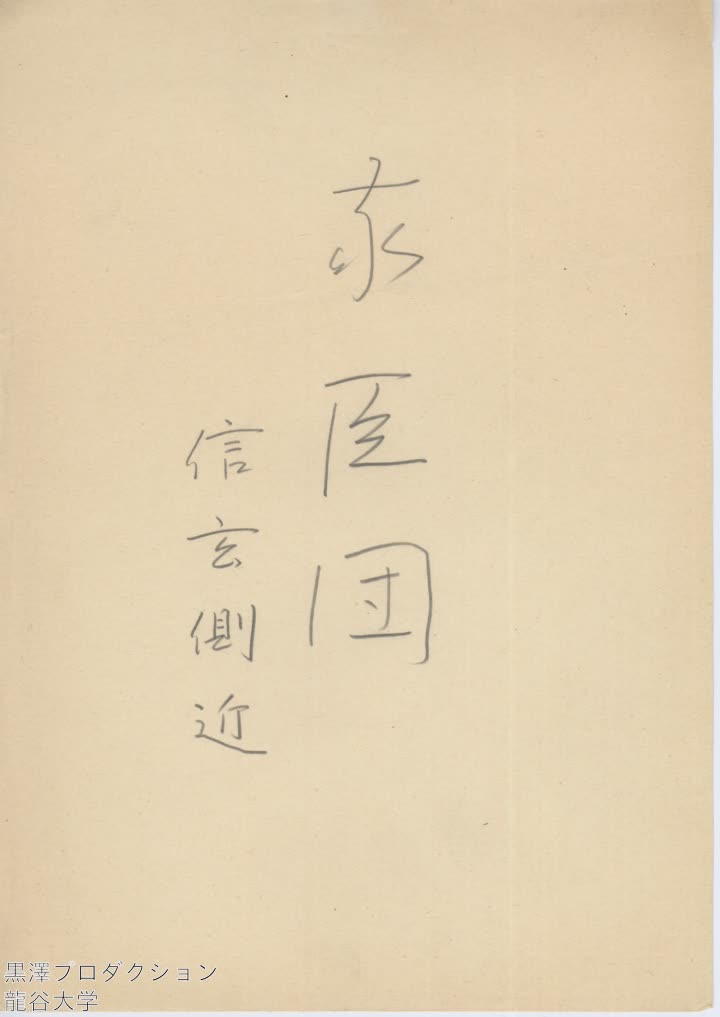 家臣団
信玄側近
黒澤プロダクション
龍谷大学